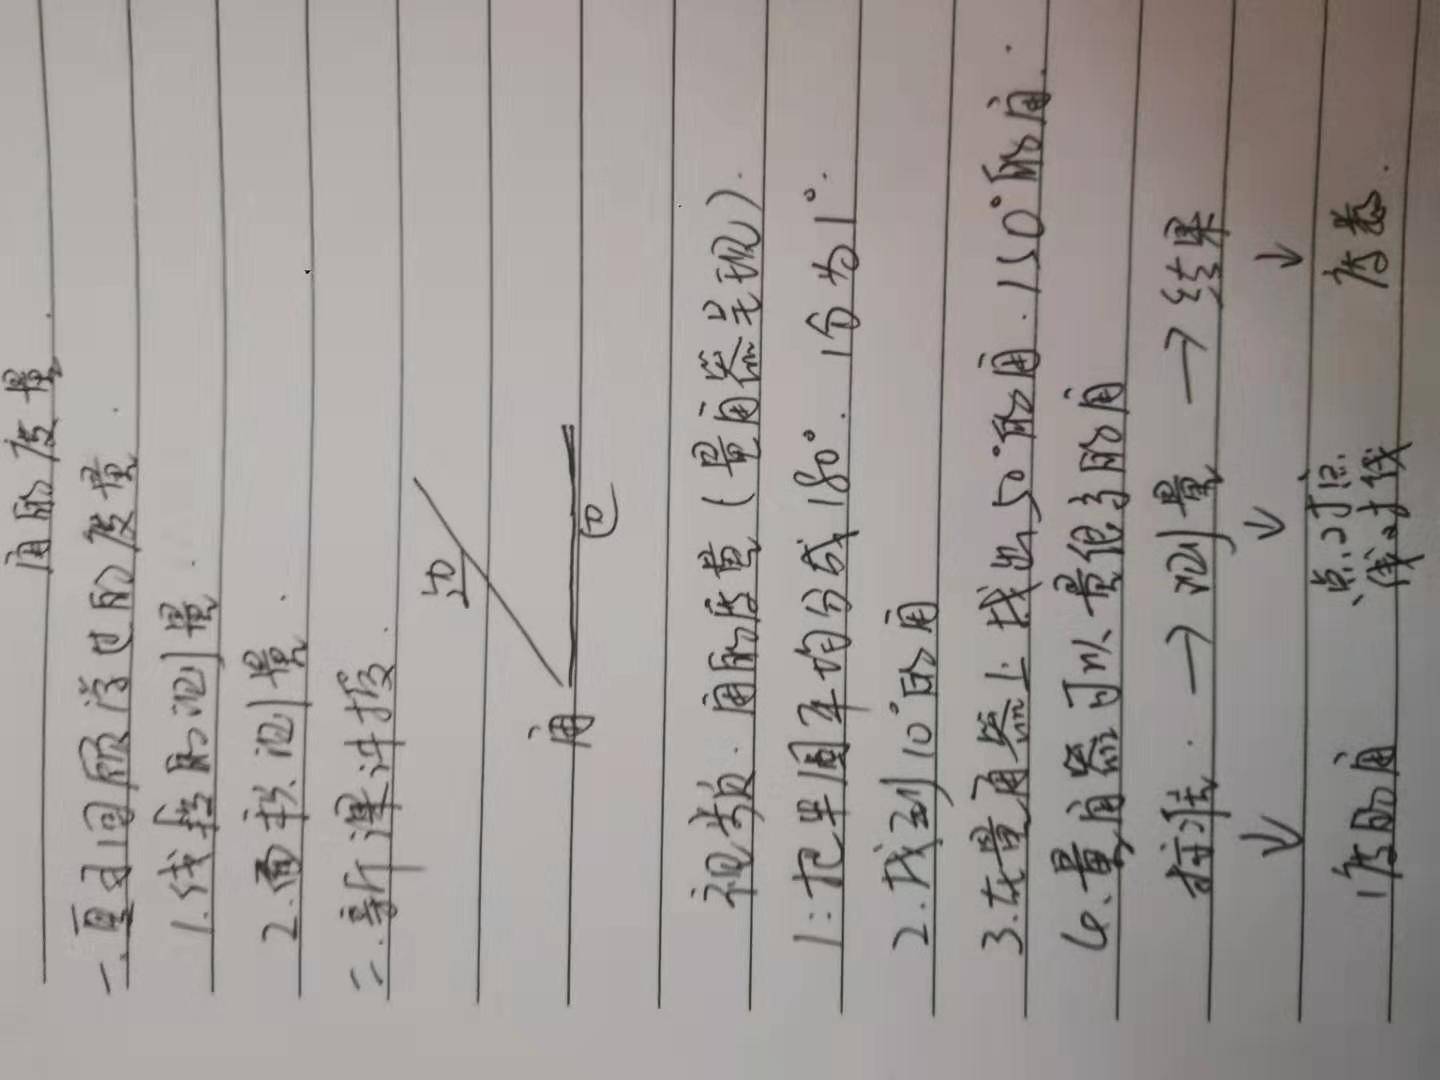 角的度量
一.复习回顾学过的度量
1.线段的测量.
2.面积测量.
二.新课讲授
边
角
边
视频.角的度量(量角器呈现).
1:把半圆平均分成180°.1份为1°.
2.找到10°的角
3.在量角器上找出50°的角.150°的角.
4、量角器可以量很多的角
标准.→测量→结果
↓ ↓ ↓
1度的角 点对点 度数.
线对线